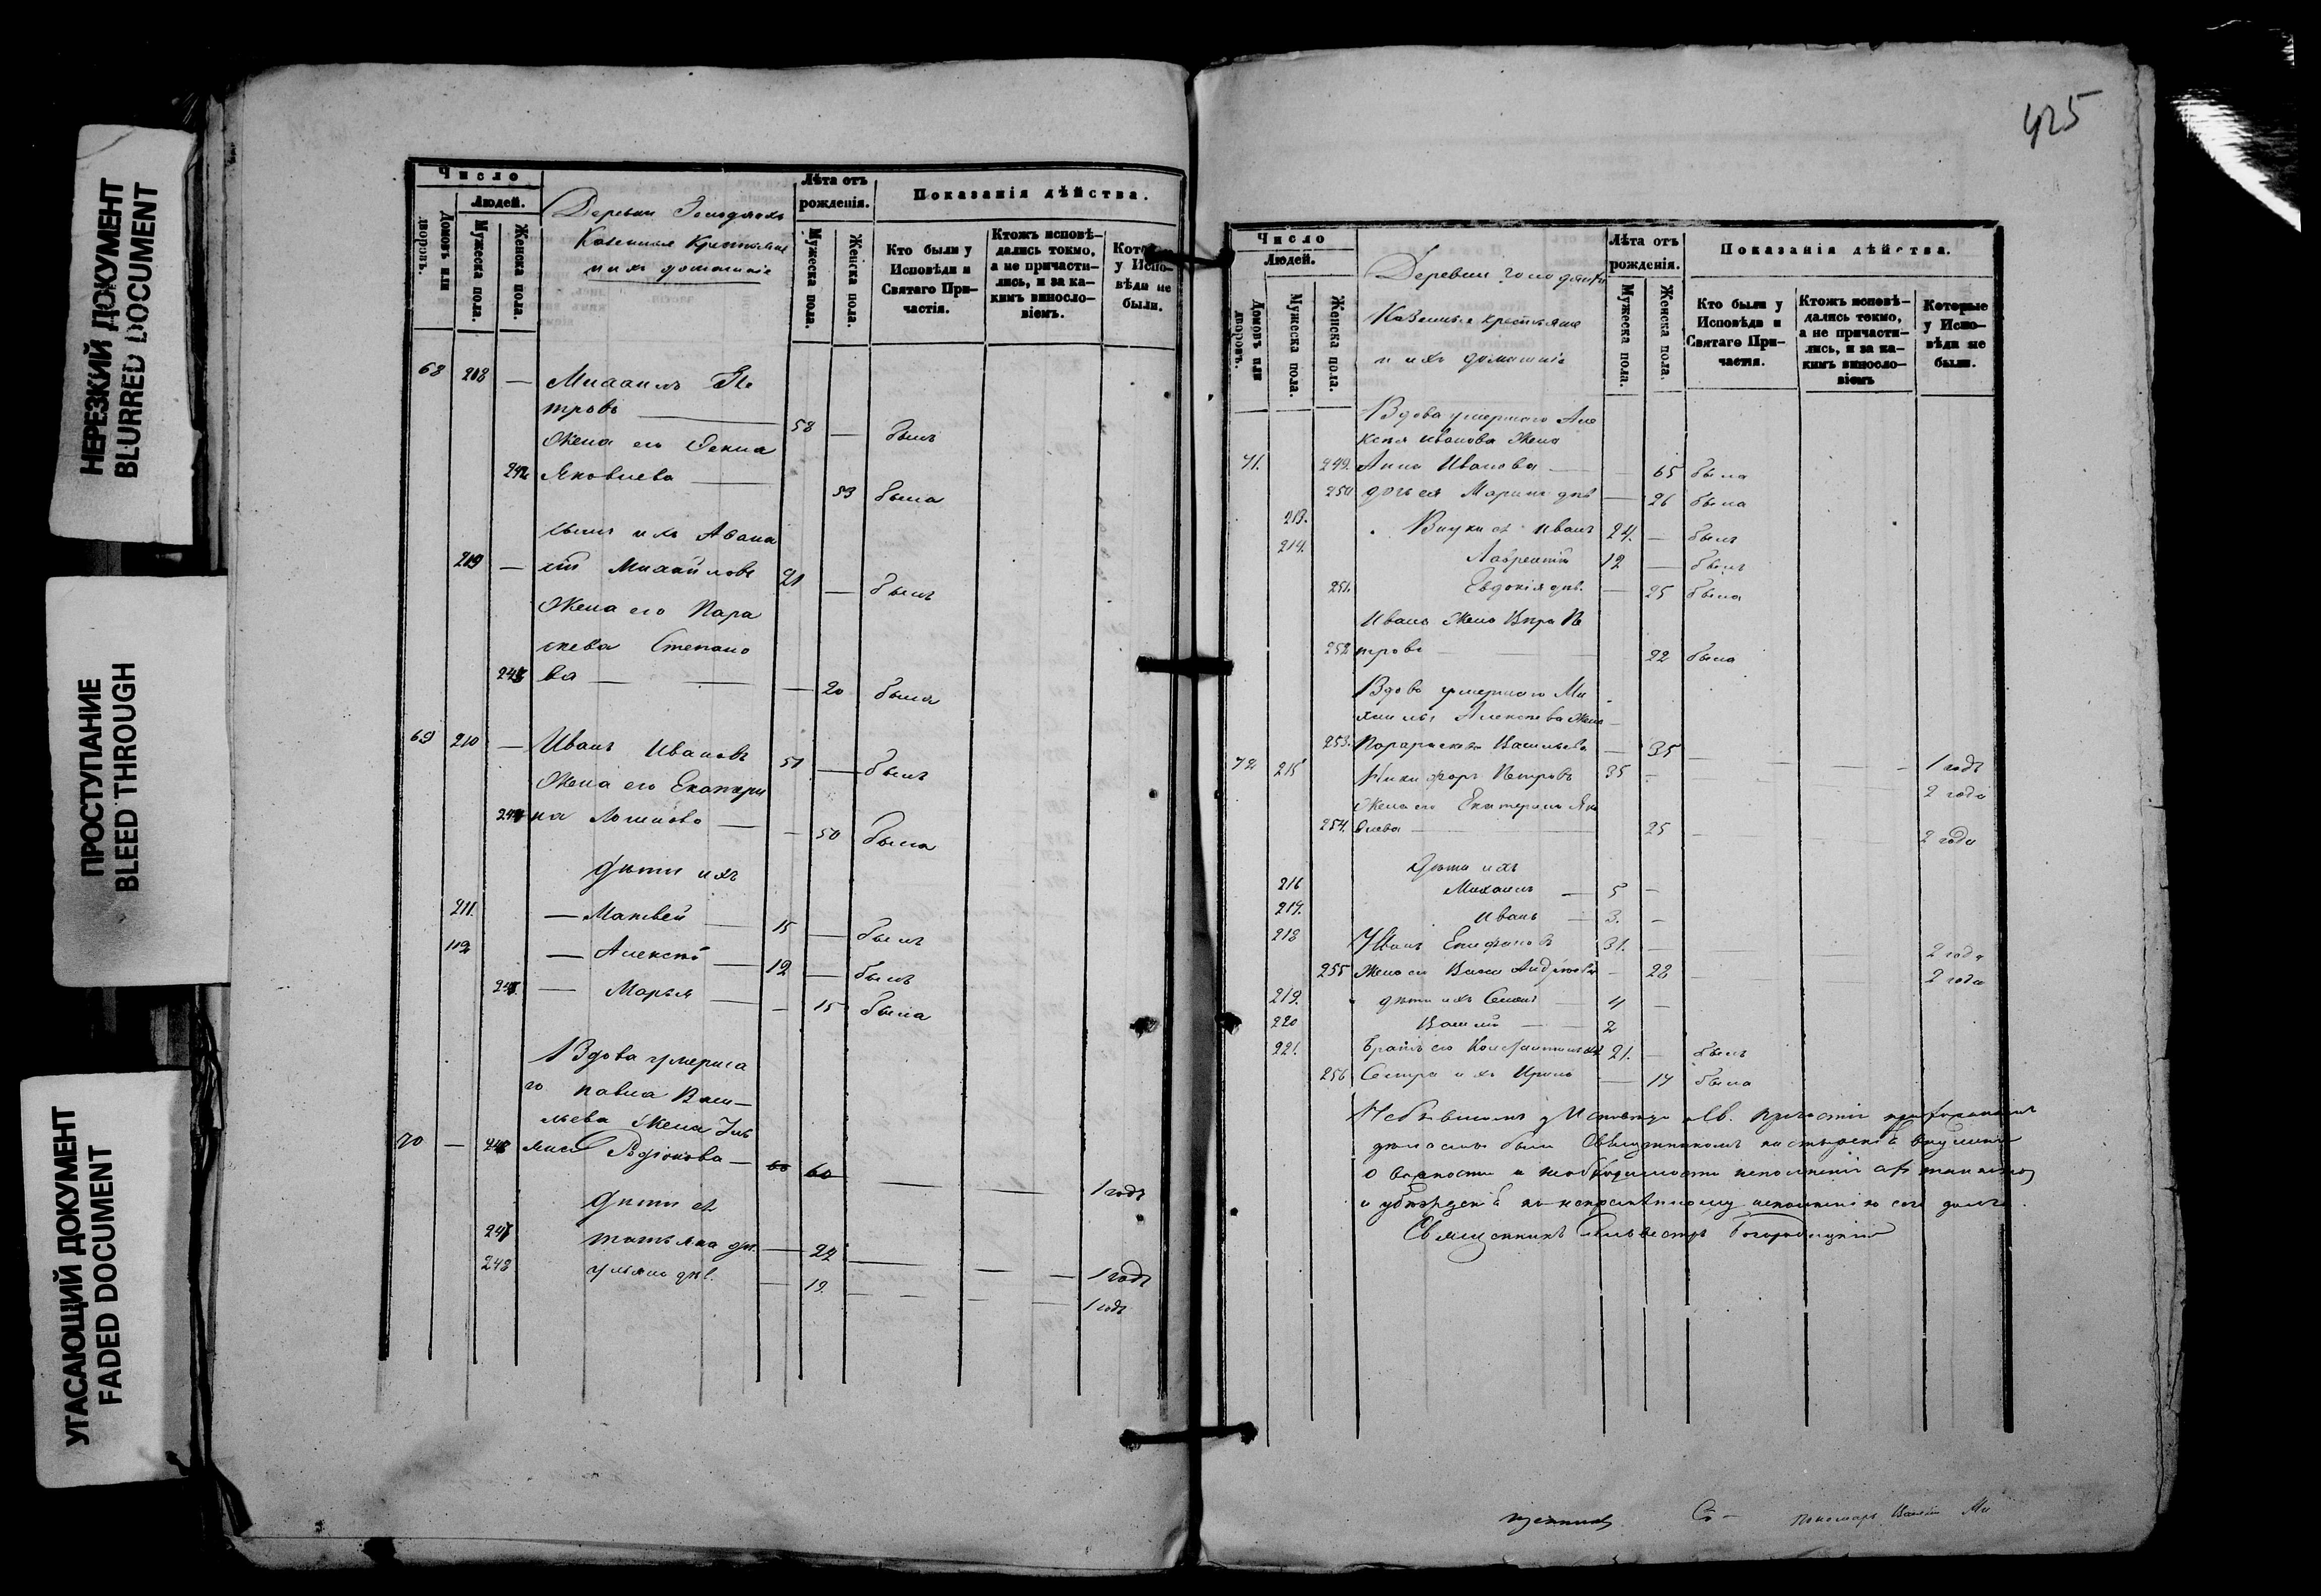 НЕРЕЗКИЙ ДОКУМЕНТ
BLURRED DOCUMENT
ПРОСТУПАНИЕ
BLEED THROUGH
УГАСАЮЩИЙ ДОКУМЕНТ
FADED DOCUMENT
Число
Людей.
Домовъ или дворовъ.
Мужеска пола.
Женска пола.
Деревни
Казенные Крестьяне
и ихъ домашніе
Лѣта отъ рожденія.
Мужеска пола.
Женска пола.
Показанія дѣйства.
Кто были у Исповѣди и Святаго Причастія.
Ктожъ исповѣдались токмо, а не причастились, и за какимъ винословіемъ.
у Исповѣди не были.
68 208 — Михаилъ Пе
тровъ — 58 — былъ
Жена его Фекла
242 Яковлева — 53 была
сынъ ихъ Афана
209 — сій Михайловъ 21 — былъ
Жена его Пара
скева Степано
243 ва — — — 20 была
69 210 — Иванъ Ивановъ 51 — былъ
Жена его Екатери
244 на Логинова — — 50 была
дѣти ихъ
211. — Матвей — 15 — былъ
112 — Алексѣй — 12 — былъ
245. — Марья — — 15 была
Вдова умерша
го Павла Васи—
льева Жена
70 — 246 Родіонова — 60 — — — 1 годъ
дѣти ея
247 Татьяна дѣв. — 22 — — — 1 годъ
248 Ульяна дѣв. — 19. — — — 1 годъ
425
Число
Людей.
Домовъ или дворовъ.
Мужеска пола.
Женска пола.
Деревни
Казенные крестьяне
и ихъ домашніе
Лѣта отъ рожденія.
Мужеска пола.
Женска пола.
Показанія дѣйства.
Кто были у Исповѣди и Святаго Причастія.
Ктожъ исповѣдались токмо, а не причастились, и за какимъ винословіемъ
Которые у Исповѣди не были.
Вдова умершаго Але
ксѣя Иванова Жена
71. 249. Анна Иванова — 65 была
250 дочь ея Марина дѣв — 26 была
213. Внуки ея Иванъ 24. — былъ
214. Лаврентій 12 — былъ
251. Евдокія дѣв. — 25 была
Ивана Жена Вѣра Пе
252 трова — — 22 была
Вдова умершаго Ми
хаила Алексѣева Жена
253. Параскева Васильева — 35 — — — 1 годъ
72 215 Никифоръ Петровъ 35 — 2 года
Жена его Екатерина Яко
254. влева — 25 — — 2 года
дѣти ихъ
216 Михаилъ — 5 —
217. Иванъ — 3. —
218 Иванъ 31. — 2 года
255 Жена его — 28 — 2 года
219. дѣти ихъ Семенъ — 4 —
220 Василій — — 2
221. Братъ его Константинъ 21. — былъ
256 Сестра ихъ Ирина — 17 была
Небывшимъ у Исповѣди и Св. Причастія
были Священникомъ
о важности и необходимости исполненія
и къ непремѣнному исполненію сего долга.
Священникъ Сильвестръ Богородицкій
Пономарь